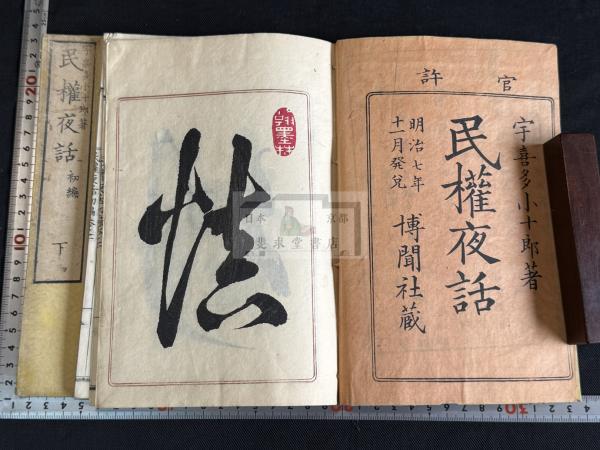 官許
宇喜多小十郎著
民權夜話
明治七年
十一月発兌
博聞社蔵
慎
民權夜話 初編
下
日本 京都
悲求堂書店